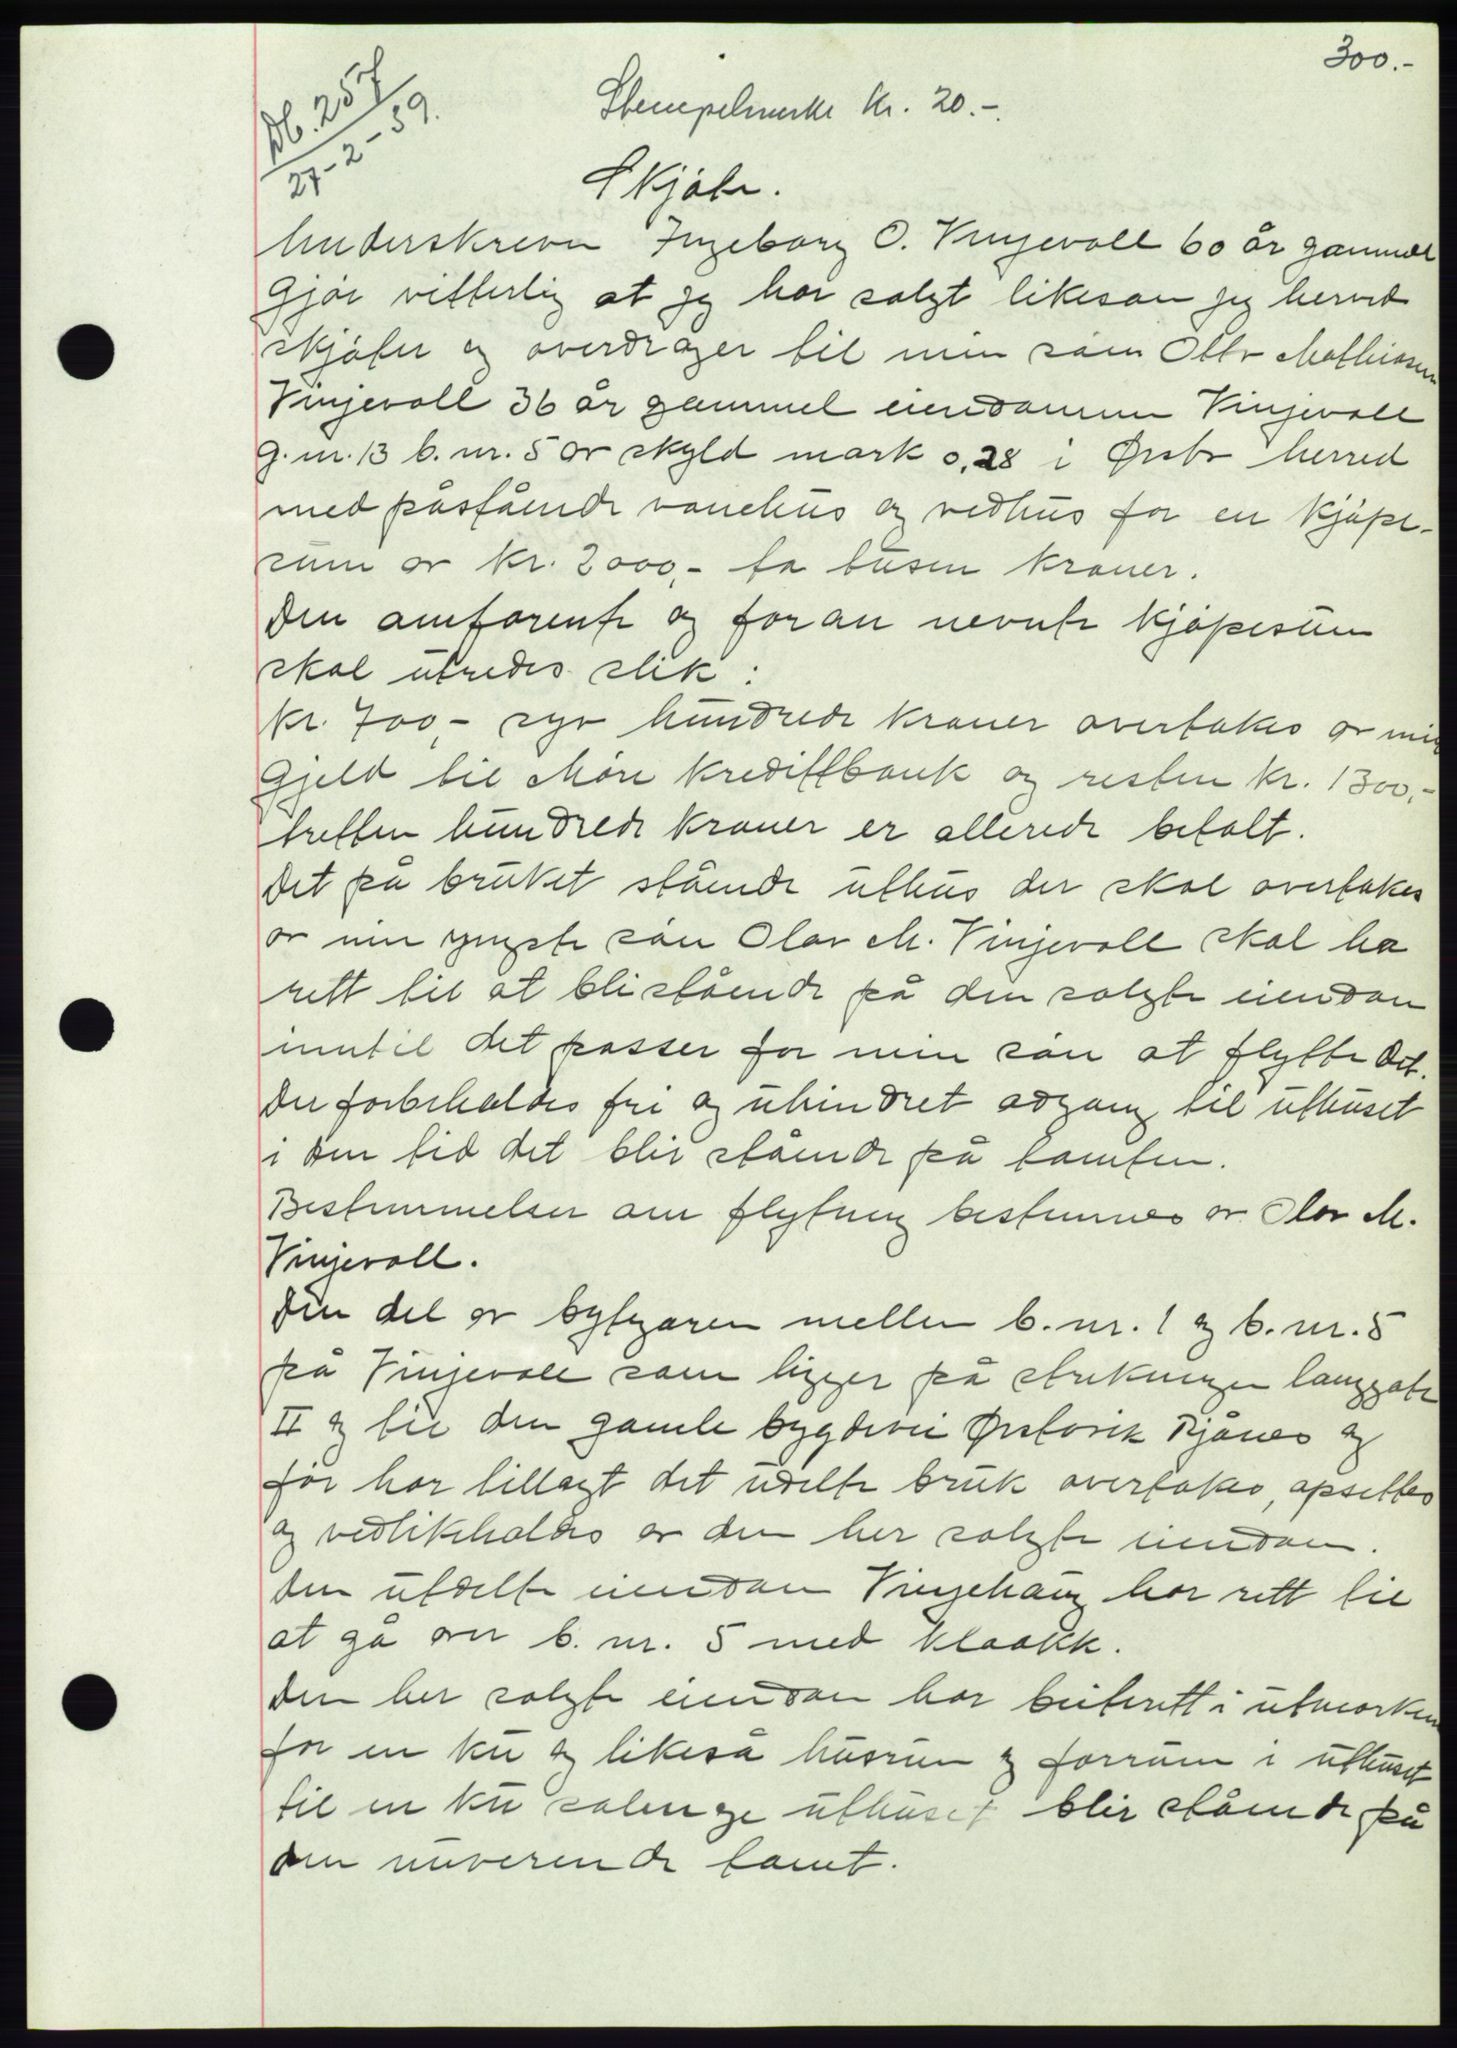 300.-
Db. 257
27-2-39.
Stempelmerke kr. 20.-.
Skjøte.
Underskreven Ingeborg O. Vinjevoll 60 år gammel
gjør vitterlig at jeg har solgt likesom jeg herved
skjøter og overdrager til min søn Otto Mathiasen
Vinjevoll 36 år gammel eiendommen Vinjevoll
g.nr. 13 b.nr. 5 av skyld mark 0,28 i Ørsta herred
med påstående vonehus og vedhus for en kjøpe-
sum av kr. 2000,- to tusen kroner.
Den omforente og foran nevnte kjøpesum
skal utredes slik:
kr. 700,- syv hundrede kroner overtakes av min
gjeld til Møre kredittbank og resten kr. 1300,-
tretten hundrede kroner er allerede betalt.
Det på bruket stående uthus der skal overtakes
av min yngste søn Olav M. Vinjevoll skal ha
rett til at bli stående på den solgte eiendom
inntil det passer for min søn at flytte det.
Der forbeholdes fri og uhindret adgang til uthuset
i den tid det blir stående på tomten.
Bestemmelser om flytning bestemmes av Olav M.
Vinjevoll.
Den del av bytgaren mellem b.nr. 1 og b.nr. 5
på Vinjevoll som ligger på strekningen langgate
II og til den gamle bygdevei Ørstavik Rjånes og
før har tillagt det udelte bruk overtakes, opsettes
og vedlikeholdes av den her solgte eiendom.
Den utdelte eiendom Vinjehaug har rett til
at gå over b. nr. 5 med kloakk.
Den her solgte eiendom har beiterett i utmarken
for en ku og likeså husrum og forrum i uthuset
til en ku salenge uthuset blir stående på
den nuverende tomt.